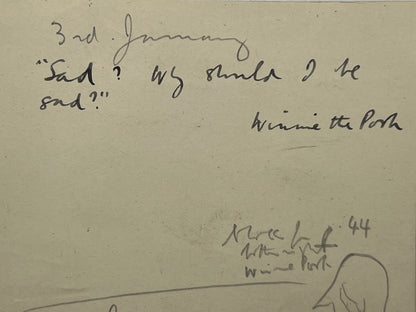 3rd. January
"Sad? Why should I be
sad?"
Winnie the Pooh
'44
Winnie Pooh